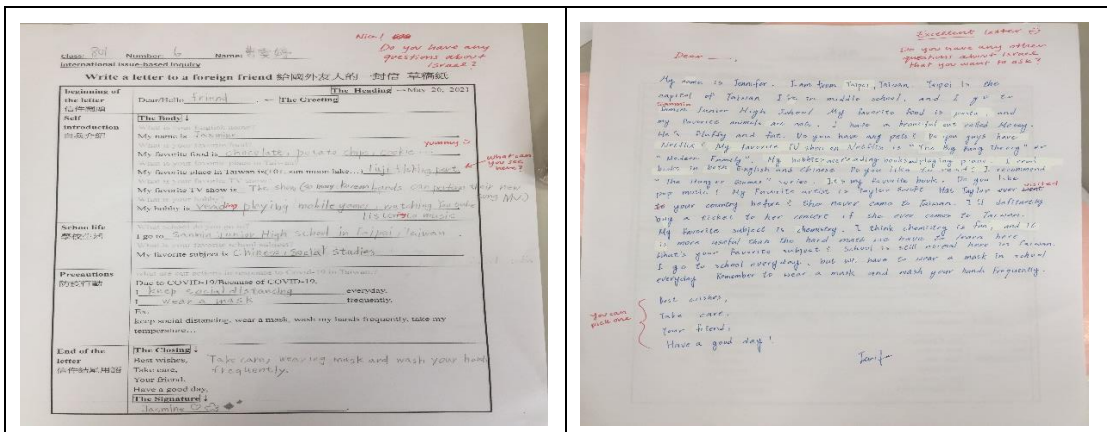 Nice!
Do you have any
questions about
Israel?
Class: 801 Number: 6 Name:
International issue-based inquiry
Write a letter to a foreign friend 給國外友人的一封信 草稿紙
The Heading --May 20, 2021
beginning of
the letter
信件開頭
Dear/Hello friend, ← The Greeting
Self
introduction
自我介紹
The Body↓
My name is Jasmine
yummy :)
My favorite food is chocolate, potato chip, cookie
what can
you see
here?
My favorite place in Taiwan is 101, sun moon lake
My favorite TV show is The show
My hobby is reading playing mobile games, watching Youtube
listening to music
School life
學校生活
I go to Sanmin Junior High school in Taipei, Taiwan.
My favorite subject is Chinese, Social Studies
Precautions
防疫行動
Due to COVID-19/Because of COVID-19,
I keep social distancing everyday.
I wear a mask frequently.
Ex.
keep social distancing, wear a mask, wash my hands frequently, take my
temperature...
End of the
letter
信件結尾用語
The Closing↓
Best wishes,
Take care, wearing mask and wash your hand
Take care,
frequently.
Your friend,
Have a good day,
The Signature↓
Jasmine
Excellent letter :)
Do you have any other
questions about Israel
that you want to ask?
Dear __,
My name is Jennifer. I am from Taipei, Taiwan. Taipei is the
capital of Taiwan. I'm in middle school, and I go to
Sanmin Junior High School. My favorite food is pasta, and
my favorite animals are cats. I have a beautiful cat called Money.
He's fluffy and fat. Do you have any pets? Do you guys have
Netflix? My favorite TV show on Netflix is "The Big Bang Theory" or
"Modern Family". My hobbies are reading books, playing piano. I read
books in both English and Chinese. Do you like to read? I recommend
"The Hunger Games" series. It's my favorite book. Do you like
pop music? My favorite artist is Taylor Swift. Has Taylor ever went
visited
to your country before? She never came to Taiwan. I'll definitely
buy a ticket to her concert if she ever comes to Taiwan.
My favorite subject is chemistry. I think chemistry is fun, and it
is more useful than the hard math we have to learn here.
What's your favorite subject? School is still normal here in Taiwan.
I go to school everyday, but we have to wear a mask in school
everyday. Remember to wear a mask and wash your hands frequently.
You can
pick one
Best wishes,
Take care,
Your friend,
Have a good day!